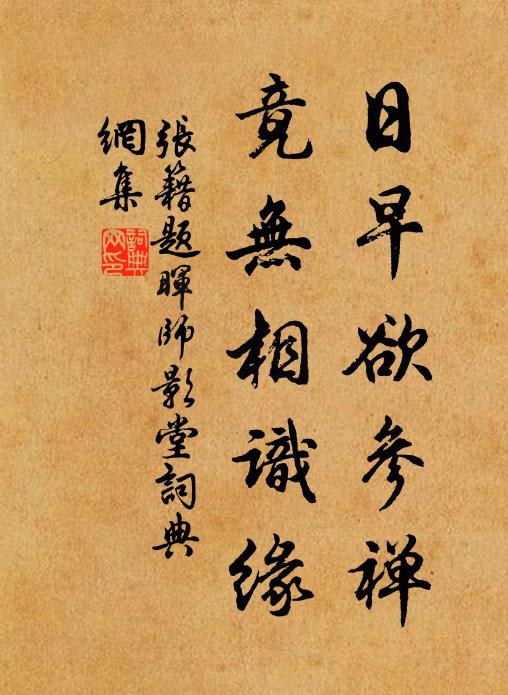 日早欲参禅
竟無相識緣
張籍題暉师影堂詞典
網集
詞典
网印